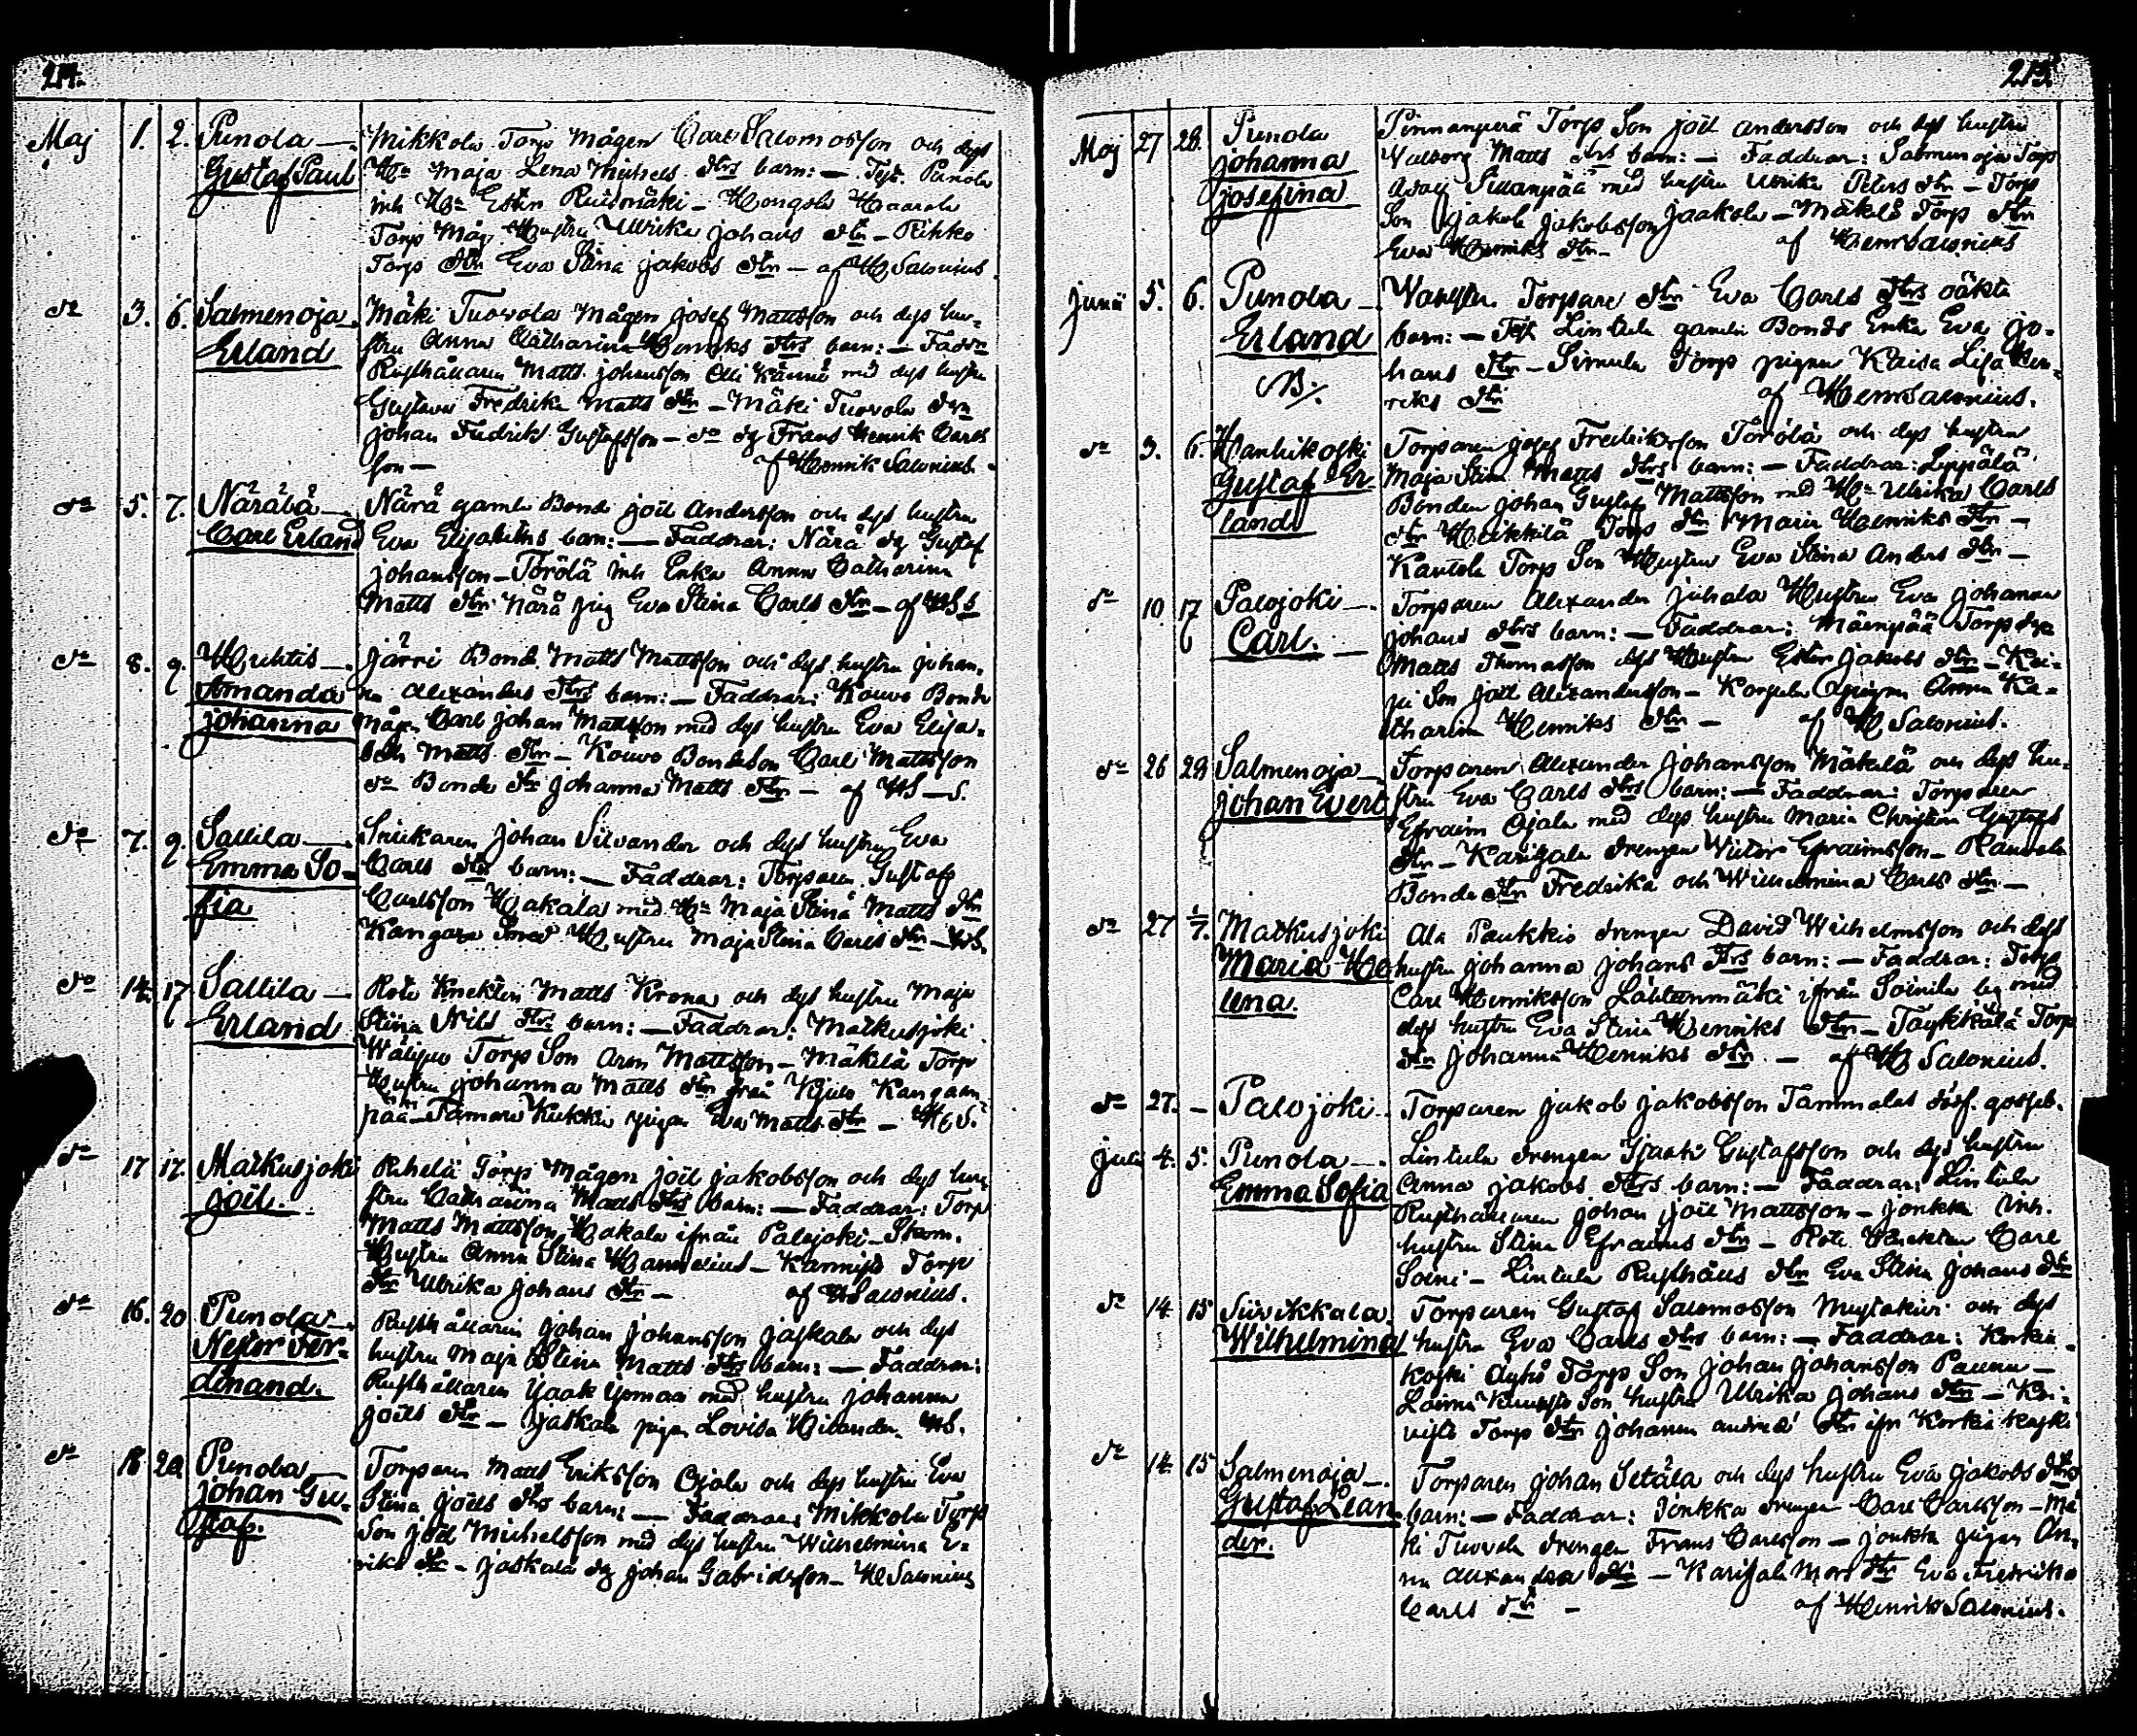 214.
Maj 1. 2. Punola — Mikkola Torp Mågen Carl Salomosson och dess
Gustaf Paul H:u Maja Lena Michels dtrs barn: — Test. Punola
inh H:u Ester Ruisomäki — Hongola Haarala
Torp Måg Hustru Ulrika Johans dtr — Pihko
Torp dtr Eva Stina Jakobs dtr — af H Salonius.
do 3. 6. Salmenoja — Mäki Tuovola Mågen Josef Mattsson och dess hu-
Erland stru Anna Catharina Henriks dtrs barn: — Fadd
Rusthållaren Matts Johansson Olli med dess hustru
Gustava Fredrika Matts dtr — Mäki Tuovola drn
Johan Fredrik Gustafsson — do dg Frans Henrik Carls
son — af Henrik Salonius.
do 5. 7. Närälä — Närä gamle Bond Joël Andersson och dess hustru
Carl Erland Eva Elisabeths barn: — Faddrar: Närä dg Gustaf
Johansson — Törölä inh Enka Anna Catharina
Matts dtr Närä pig Eva Stina Carls dtr — af HSs
do 8. 9. Huhtis — Järri Bond. Matts Mattsson och dess hustru Johan-
Amanda na Alexanders dtrs barn: — Faddrar: Kouvo Bonde
Johanna mågen Carl Johan Mattsson med dess hustru Eva Elisa-
beth Matts dtr — Kouvo Bondeson Carl Mattsson
do Bonde dtr Johanna Matts dtr — af HS — s.
do 7. 9. Sallila — Snickaren Johan Silvander och dess hustru Eva
Emma So- Carls dtr barn: — Faddrar: Torparen Gustaf
fia Carlsson Hakala med H:u Maja Stina Matts dtr
Kangars Smed Hustru Maja Stina Carls dtr — HS.
do 14. 17 Sallila — Rote Knekten Matts Krona och dess hustru Maja
Erland Stina Nils dtrs barn: — Faddrar: Matkusjoki
Torp Son Aron Mattsson — Mäkilä Torp
Hustru Johanna Matts dtr från Kangaan-
pää — Kukku pigan Eva Matts dtr — H.S.
do 17 17. Matkusjoki Rihelä Torp Mågen Joël Jakobsson och dess hu-
Joël. stru Catharina Matts dtrs barn: — Faddrar: Torp
Matts Mattsson Hakala ifrån Palojoki — Skom.
Hustru Anna Stina — Torp
dtr Ulrika Johans dtr — af H Salonius.
do 16. 20 Punola — Rusthållaren Johan Johansson Jaskala och dess
Nestor Fer- hustru Maja Stina Matts dtrs barn: — Faddrar:
dinand. Rusthållaren Isaak med hustru Johanna
Joëls dtr — Jaskala pigan Lovisa HS.
do 18 20 Punola — Torparen Matts Eriksson Ojala och dess hustru Eva
Johan Gu- Stina Joëls dtrs barn: — Faddrar: Mikkola Torp
staf. Son Joël Michelsson med dess hustru Wilhelmina E-
riks dtr — Jaskala dg Johan Gabrielsson — H Salonius
215.
Maj 27 28. Punola Pinnanperä Torp Son Joël Andersson och dess hustru
Johanna Walborg Matts dtrs barn: — Faddrar: Salmenoja Torp
Josefina Sillanpää med hustru Ulrika Peters dtr — Torp
Son Jakob Jakobsson Jaakola — Mäkelä Torp dtr
Eva Henriks dtr — af Henr Salonius
Junii 5. 6. Punola — Torpare dtr Eva Carls dtrs oäkta
Erland barn: — Test Lintula gamla Bonds Enka Eva Jo-
hans dtr — Simula Torps pigan Kaisa Lisa Hen-
riks dtr af Henr Salonius.
do 3. 6. Hanhikoski Torparen Josef Fredriksson Törölä och dess hustru
Gustaf Er- Maja Stina Matts dtrs barn: — Faddrar: Leppälä
land Bonden Johan Gustaf Mattsson med H:u Ulrika Carls
dtr Heikkilä Torp dtr Maria Henriks dtr —
Kantola Torp Son Hustru Eva Stina Anders dtr —
do 10 17 Palojoki — Torparen Alexander Juhala Hustru Eva Johanna
Carl. — Johans dtrs barn: — Faddrar: Mäenpää Torp
Matts Thomasson dess Hustru Ester Jakobs dtr —
Son Joël Alexandersson — pigan Anna Ka-
tharina Henriks dtr — af H Salonius.
do 26 29 Salmenoja — Torparen Alexander Johansson Mäkelä och dess hu-
Johan Evert stru Eva Carls dtrs barn: — Faddrar: Torparen
Efraim Ojala med dess hustru Maria Christina Gustafs
dtr — Karisjala drengen Victor Efraimsson — Rauvola
Bonde dtr Fredrika och Wilhelmina Carls dtr —
do 27 1/7. Matkusjoki Ala Paukkio drengen David Wilhelmsson och dess
Maria He- hustru Johanna Johans dtrs barn: — Faddrar: Torp
lena. Carl Henriksson Lähteenmäki ifrån Soinila by med
dess hustru Eva Stina Henriks dtr — Torp
dtr Johanna Henriks dtr — af H Salonius.
do 27. — Palojoki — Torparen Jakob Jakobsson Tammelas dödf. gosseb.
Julii 4. 5. Punola — Lintula drengen Isaak Gustafsson och dess hustru
Emma Sofia Anna Jakobs dtrs barn: — Faddrar: Lintula
Rusthållaren Johan Joël Mattsson — Jonkka Inh.
hustru Stina Efraims dtr — Rote Knekten Carl
Soini — Lintula Rusthålls dtr Eva Stina Johans dtr
do 14 15 Suivikkala Torparen Gustaf Salomosson Mustakivi och dess
Wilhelmina hustru Eva Carls dtrs barn: — Faddrar: Korkia-
koski Torp Son Johan Johansson —
Son hustru Ulrika Johans dtr —
Torp dtr Johanna dtr ifr Korkiakoski
do 14 15 Salmenoja — Torparen Johan Setälä och dess hustru Eva Jakobs dtrs
Gustaf Lean- barn: — Faddrar: Jonkka drengen Carl Carlsson — Mä-
der. ki Tuovola drengen Frans Carlsson — Jonkka pigan An-
na Alexandra dtr — Karisjala dtr Eva Fredrika
Carls dtr — af Henrik Salonius.